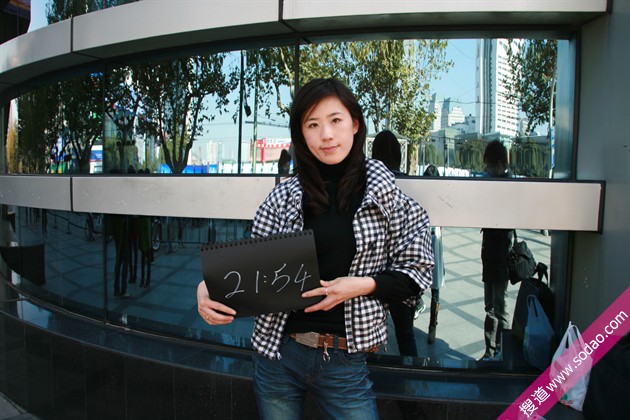 21:54
搜道www.sodao.com